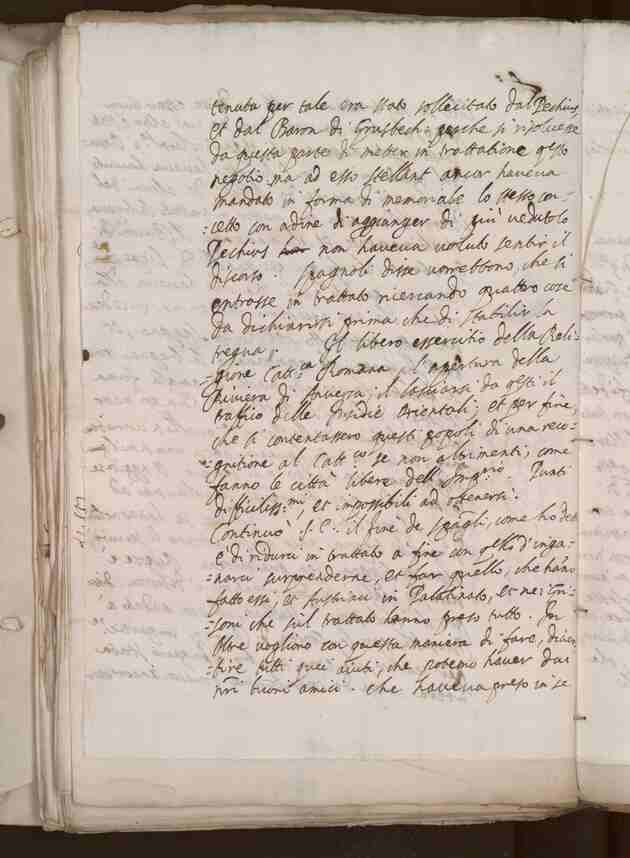 tenuta per tale era stato sollecitato dal Pechius,
et dal Baron di Grusbech; perche si risolvesse
da questa parte di metter in trattatione questo
negotio, ma ad esso Stellant ancor haveva
mandato in forma di memoriale lo stesso con-
:cetto con ordine di aggiunger di più veduto lo
Pechius non haveva voluto sentir il
discorso. Spagnoli disse vorrebbono, che si
entrasse in trattato ricercando quattro cose
da dichiararsi prima che di stabilir la
tregua. Il libero essercitio della Reli-
:gione Catt.ca Romana, l'apertura della
Riviera di Anversa; il lasciarsi da questi il
traffico delle Indie Orientali; et per fine,
che si contentassero questi popoli di una reco-
:gnitione al Catt.co se non altrimenti, come
fanno le città libere dell'Imp.rio. Punti
difficiliss.mi, et impossibili ad ottenersi.
Continuò S. E. il fine de Spagn.li, come ho detto
è di ridurci in trattato a fine con questo d'inga-
:narci surprenderne, et far quello, che hano
fatto essi, et Austriaci in Palatinato, et nei Gri-
:soni che sul trattato hanno preso tutto. Per
oltre vogliono con questa maniera di fare, diver-
:tire tutti quei aiuti, che potemo haver dai
nri buoni amici. che haveva preso in se